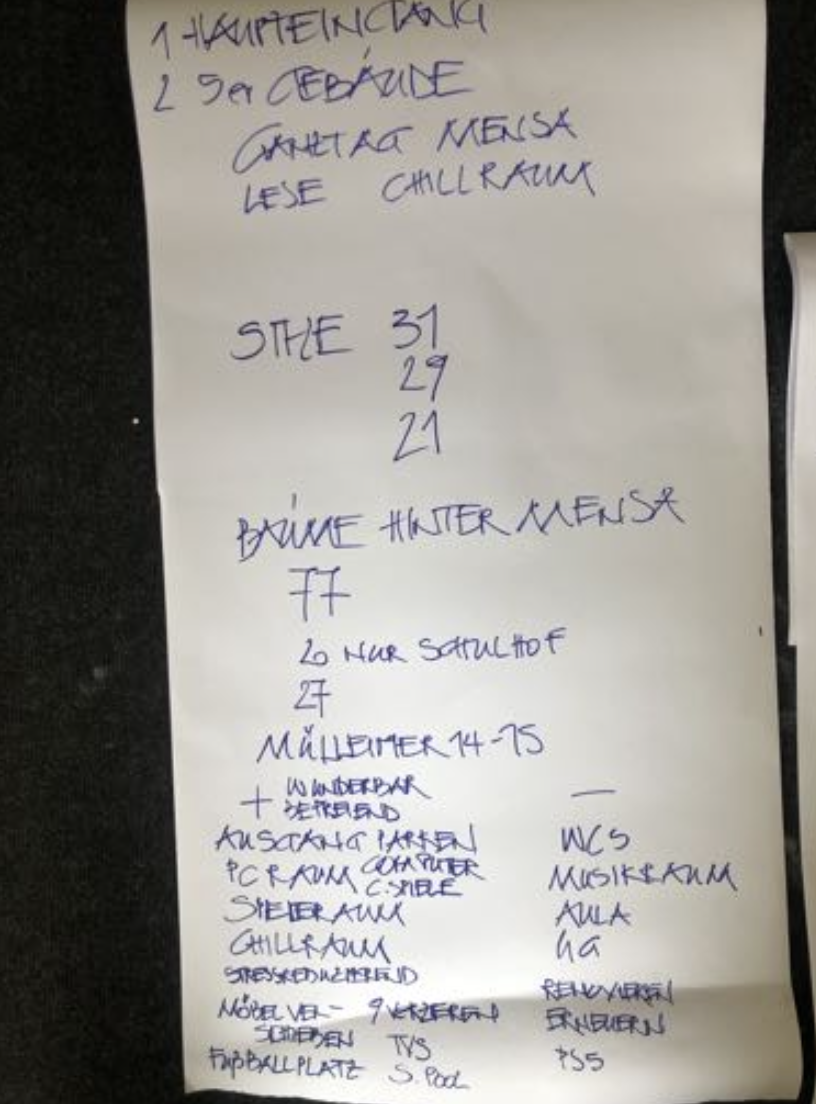 1 HAUPTEINGANG
2 5er GEBÄUDE
GANZTAG MENSA
LESE CHILLRAUM
STHE 31
29
21
BÄUME HINTER MENSA
77
20 NUR SCHULHOF
27
MÜLLEIMER 14-15
+ WUNDERBAR —
BEFREIEND
AUSGANG PARKEN WCS
PC RAUM COMPUTER MUSIKRAUM
C.SPIELE
SPIELERAUM AULA
CHILLRAUM 4a
STRESSREDUZIEREND
RENOVIEREN
MÖBEL VER- VERZIEREN ERNEUERN
SCHIEBEN TVS
FUßBALLPLATZ S. POOL PS5